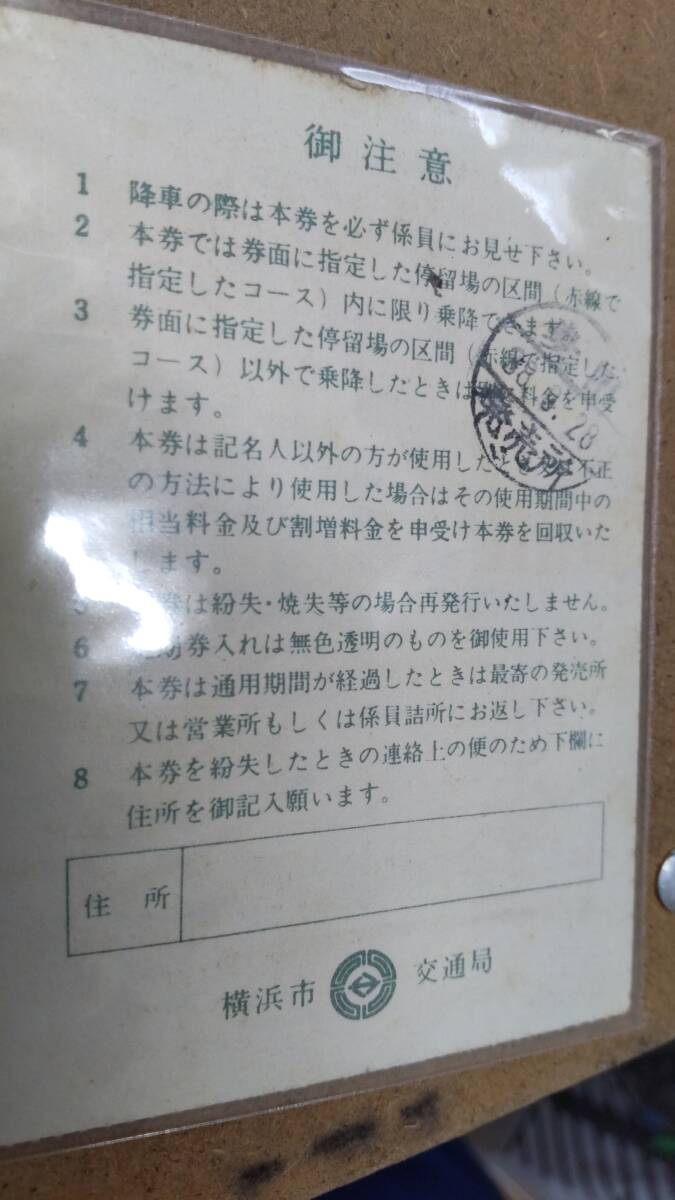 御注意
1 降車の際は本券を必ず係員にお見せ下さい。
2 本券では券面に指定した停留場の区間（赤線で
指定したコース）内に限り乗降できます。
3 券面に指定した停留場の区間（赤線で指定した
コース）以外で乗降したときは 料金を申受
けます。
4 本券は記名人以外の方が使用したとき 不正
の方法により使用した場合はその使用期間中の
相当料金及び割増料金を申受け本券を回収いた
します。
5 券は紛失・焼失等の場合再発行いたしません。
6 期券入れは無色透明のものを御使用下さい。
7 本券は通用期間が経過したときは最寄の発売所
又は営業所もしくは係員詰所にお返し下さい。
8 本券を紛失したときの連絡上の便のため下欄に
住所を御記入願います。
28
発売所
住所
横浜市 交通局